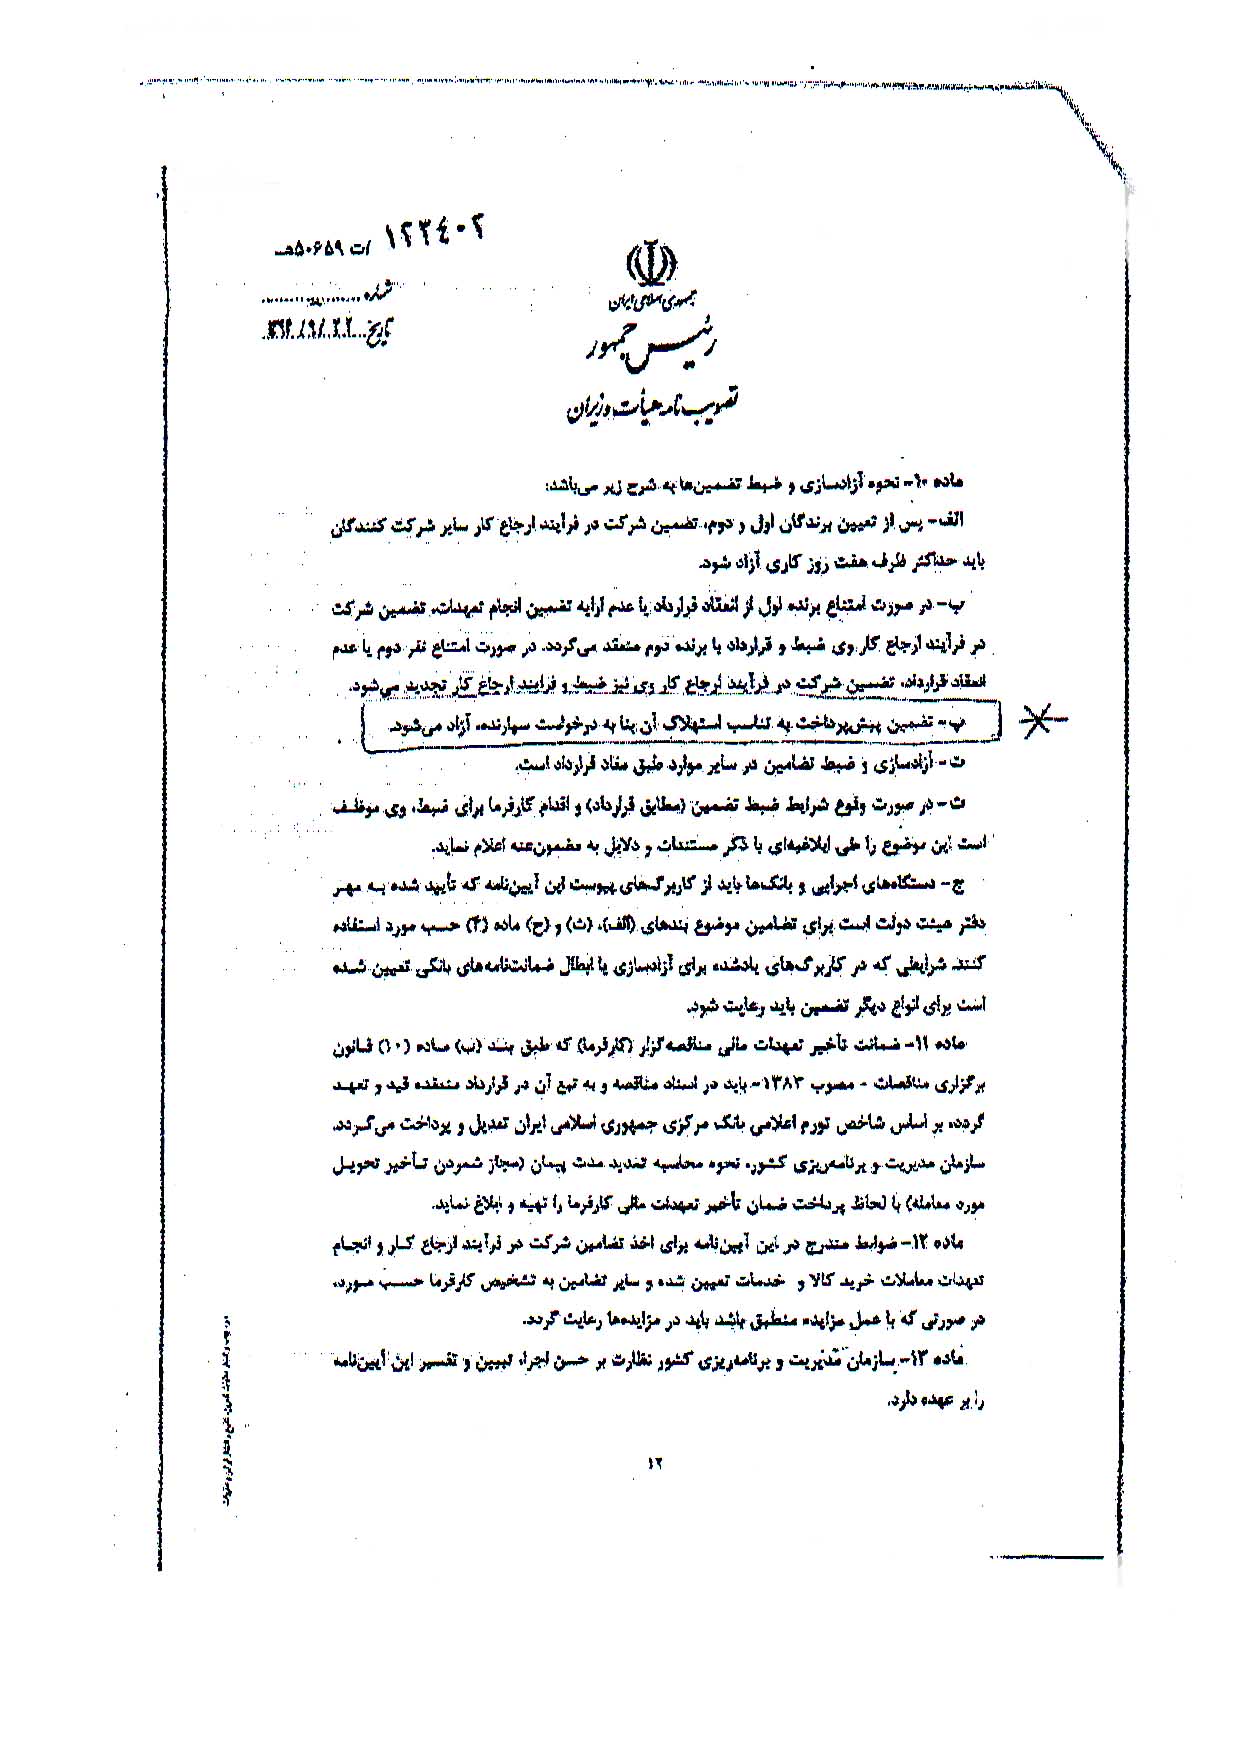 ۱۲۳۴۰۲ /ت ۵۰۶۵۹هـ
شماره
تاریخ ۱۳۹۴/۹/۲۲
جمهوری اسلامی ایران
رئیس جمهور
تصویب نامه هیأت وزیران
ماده ۱۰- نحوه آزادسازی و ضبط تضمین‌ها به شرح زیر می‌باشد:
الف- پس از تعیین برندگان اول و دوم، تضمین شرکت در فرآیند ارجاع کار سایر شرکت کنندگان
باید حداکثر ظرف هفت روز کاری آزاد شود.
ب- در صورت امتناع برنده اول از انعقاد قرارداد یا عدم ارایه تضمین انجام تعهدات، تضمین شرکت
در فرآیند ارجاع کار وی ضبط و قرارداد با برنده دوم منعقد می‌گردد. در صورت امتناع نفر دوم یا عدم
انعقاد قرارداد، تضمین شرکت در فرآیند ارجاع کار وی نیز ضبط و فرایند ارجاع کار تجدید می‌شود.
پ- تضمین پیش‌پرداخت به تناسب استهلاک آن بنا به درخواست سپارنده، آزاد می‌شود.
ت- آزادسازی و ضبط تضامین در سایر موارد طبق مفاد قرارداد است.
ث- در صورت وقوع شرایط ضبط تضمین (مطابق قرارداد) و اقدام کارفرما برای ضبط، وی موظف
است این موضوع را طی ابلاغیه‌ای با ذکر مستندات و دلایل به مضمون‌عنه اعلام نماید.
ج- دستگاه‌های اجرایی و بانک‌ها باید از کاربرگ‌های پیوست این آیین‌نامه که تأیید شده به مهر
دفتر هیئت دولت است برای تضامین موضوع بندهای (الف)، (ث) و (ح) ماده (۴) حسب مورد استفاده
کنند. شرایطی که در کاربرگ‌های یادشده برای آزادسازی یا ابطال ضمانت‌نامه‌های بانکی تعیین شده
است برای انواع دیگر تضمین باید رعایت شود.
ماده ۱۱- ضمانت تأخیر تعهدات مالی مناقصه‌گزار (کارفرما) که طبق بند (ب) ماده (۱۰) قانون
برگزاری مناقصات - مصوب ۱۳۸۳- باید در اسناد مناقصه و به تبع آن در قرارداد منعقده قید و تعهد
گردد، بر اساس شاخص تورم اعلامی بانک مرکزی جمهوری اسلامی ایران تعدیل و پرداخت می‌گردد.
سازمان مدیریت و برنامه‌ریزی کشور، نحوه محاسبه تمدید مدت پیمان (مجاز شمردن تأخیر تحویل
مورد معامله) با لحاظ پرداخت ضمان تأخیر تعهدات مالی کارفرما را تهیه و ابلاغ نماید.
ماده ۱۲- ضوابط مندرج در این آیین‌نامه برای اخذ تضامین شرکت در فرآیند ارجاع کار و انجام
تعهدات معاملات خرید کالا و خدمات تعیین شده و سایر تضامین به تشخیص کارفرما حسب مورد،
در صورتی که با عمل مزایده منطبق باشد باید در مزایده‌ها رعایت گردد.
ماده ۱۳- سازمان مدیریت و برنامه‌ریزی کشور نظارت بر حسن اجرا، تبیین و تفسیر این آیین‌نامه
را بر عهده دارد.
۱۲